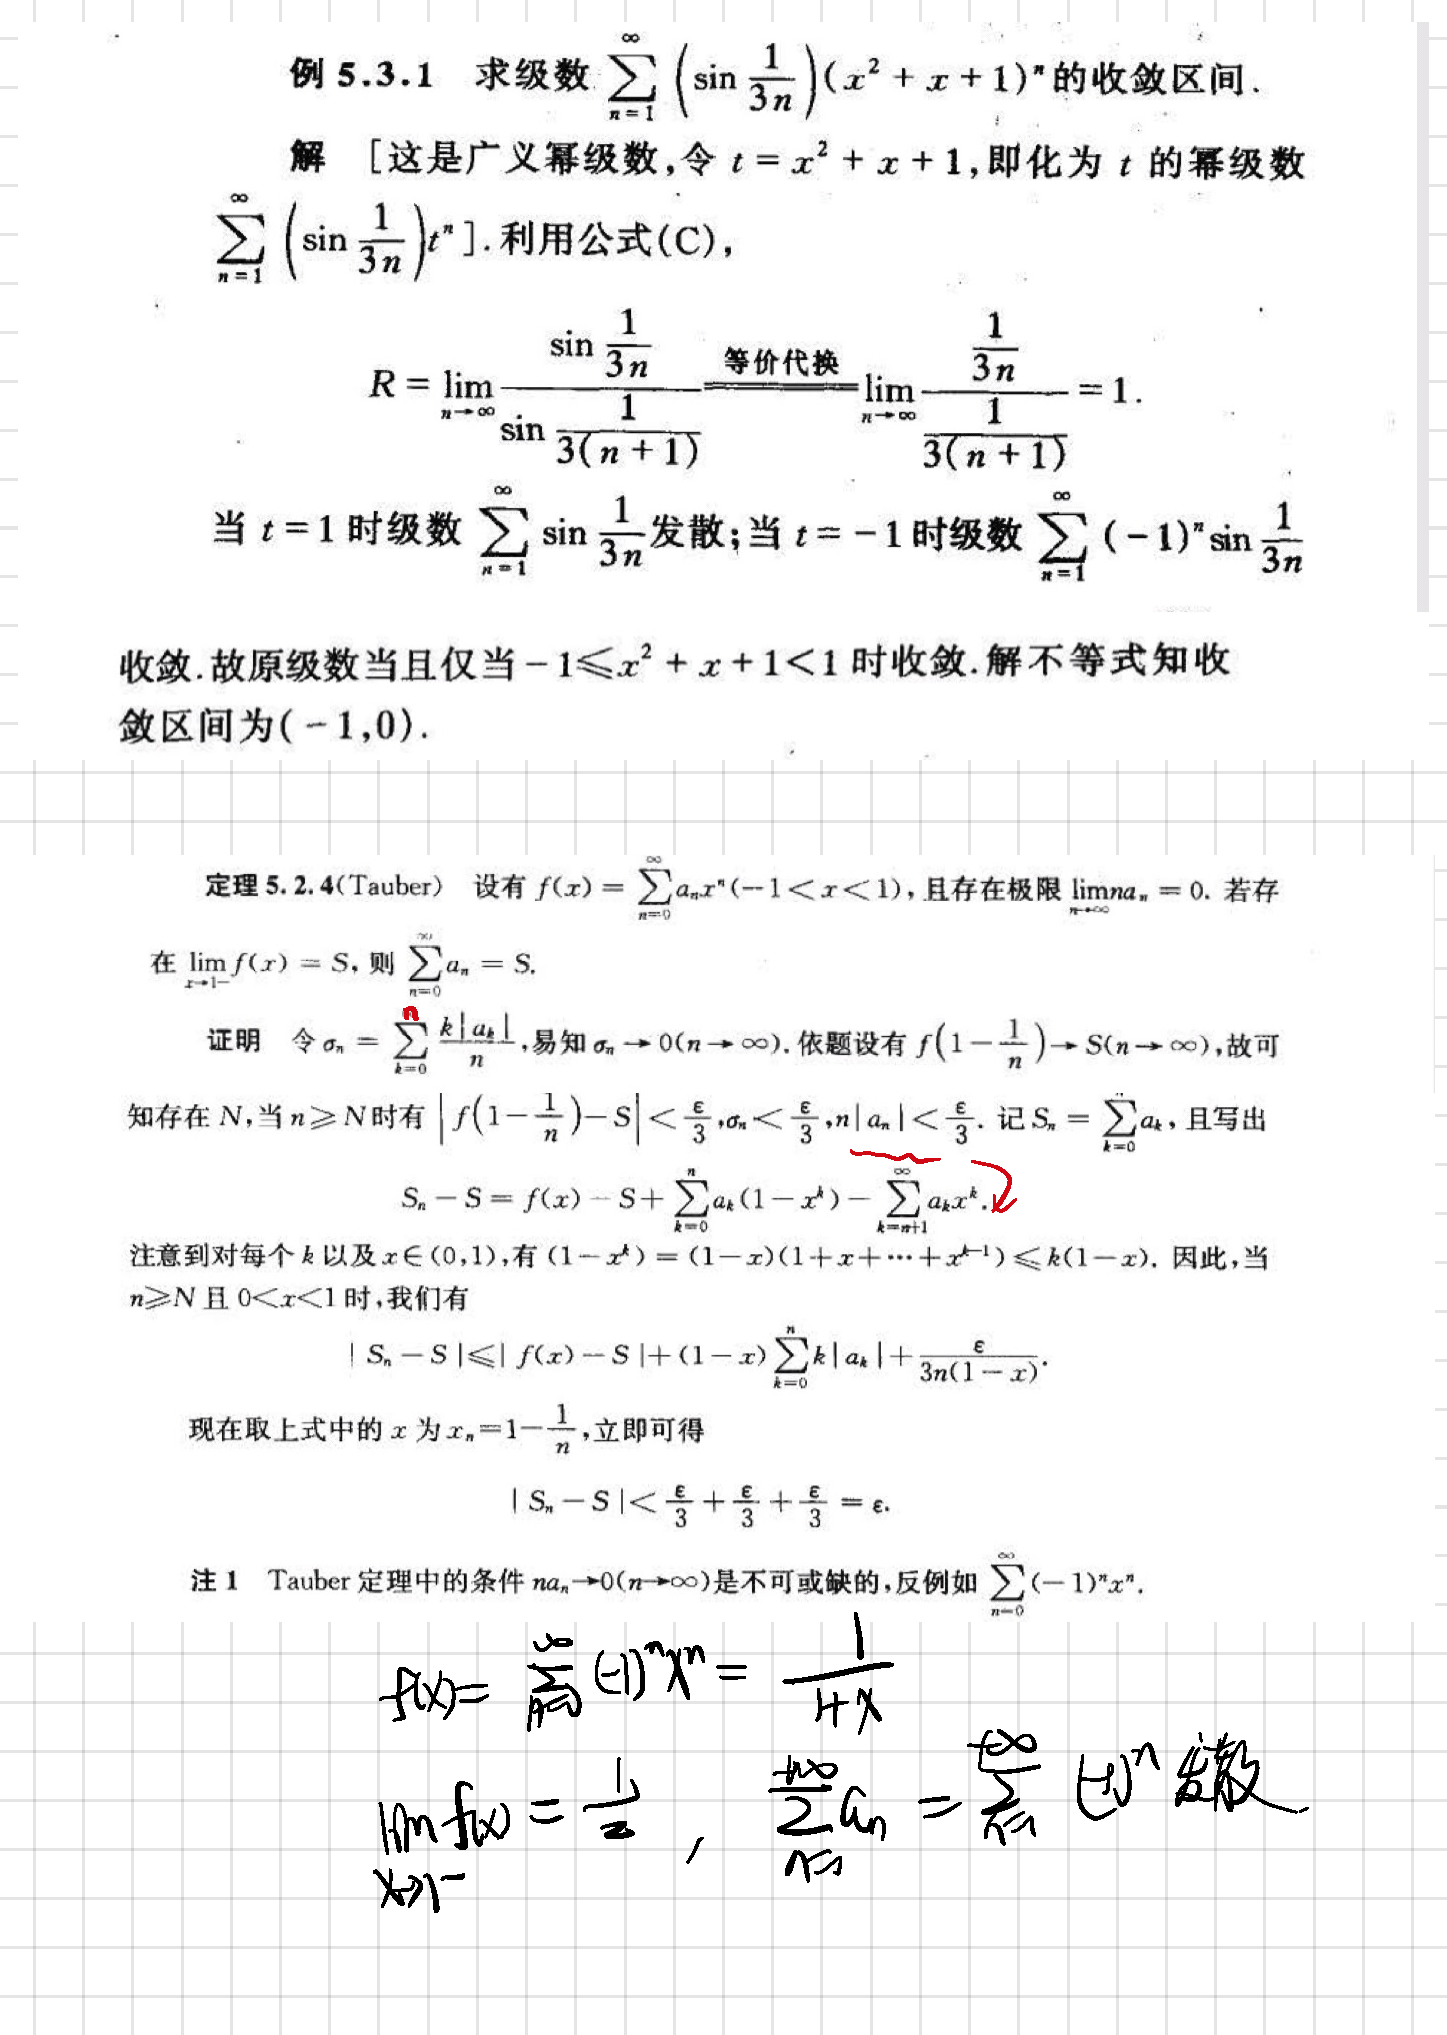 例 5.3.1 求级数 $\sum_{n=1}^{\infty}\left(\sin\frac{1}{3n}\right)(x^2+x+1)^n$ 的收敛区间.
解 [这是广义幂级数,令 $t=x^2+x+1$,即化为 t 的幂级数
$\sum_{n=1}^{\infty}\left(\sin\frac{1}{3n}\right)t^n$].利用公式(C),
$R=\lim_{n\to\infty}\frac{\sin\frac{1}{3n}}{\sin\frac{1}{3(n+1)}}\xlongequal{等价代换}\lim_{n\to\infty}\frac{\frac{1}{3n}}{\frac{1}{3(n+1)}}=1.$
当 $t=1$ 时级数 $\sum_{n=1}^{\infty}\sin\frac{1}{3n}$ 发散;当 $t=-1$ 时级数 $\sum_{n=1}^{\infty}(-1)^n\sin\frac{1}{3n}$
收敛.故原级数当且仅当 $-1\leqslant x^2+x+1<1$ 时收敛.解不等式知收
敛区间为(-1,0).
定理 5.2.4(Tauber) 设有 $f(x)=\sum_{n=0}^{\infty}a_nx^n(-1<x<1)$, 且存在极限 $\lim_{n\to\infty}na_n=0$. 若存
在 $\lim_{x\to1-}f(x)=S$, 则 $\sum_{n=0}^{\infty}a_n=S$.
证明 令 $\sigma_n=\sum_{k=0}^{n}\frac{k|a_k|}{n}$,易知 $\sigma_n\to0(n\to\infty)$. 依题设有 $f\left(1-\frac{1}{n}\right)\to S(n\to\infty)$,故可
知存在 N,当 $n\geqslant N$ 时有 $\left|f\left(1-\frac{1}{n}\right)-S\right|<\frac{\varepsilon}{3},\sigma_n<\frac{\varepsilon}{3},n|a_n|<\frac{\varepsilon}{3}$. 记 $S_n=\sum_{k=0}^{n}a_k$, 且写出
$S_n-S=f(x)-S+\sum_{k=0}^{n}a_k(1-x^k)-\sum_{k=n+1}^{\infty}a_kx^k.$
注意到对每个 k 以及 $x\in(0,1)$,有 $(1-x^k)=(1-x)(1+x+\cdots+x^{k-1})\leqslant k(1-x)$. 因此,当
$n\geqslant N$ 且 $0<x<1$ 时,我们有
$|S_n-S|\leqslant|f(x)-S|+(1-x)\sum_{k=0}^{n}k|a_k|+\frac{\varepsilon}{3n(1-x)}.$
现在取上式中的 x 为 $x_n=1-\frac{1}{n}$,立即可得
$|S_n-S|<\frac{\varepsilon}{3}+\frac{\varepsilon}{3}+\frac{\varepsilon}{3}=\varepsilon.$
注 1 Tauber 定理中的条件 $na_n\to0(n\to\infty)$是不可或缺的,反例如 $\sum_{n=0}^{\infty}(-1)^nx^n$.
$f(x)=\sum_{n=0}^{\infty}(-1)^nx^n=\frac{1}{1+x}$
$\lim_{x\to1^-}f(x)=\frac{1}{2}$, $\sum_{n=1}^{+\infty}a_n=\sum_{n=1}^{+\infty}(-1)^n$ 发散.